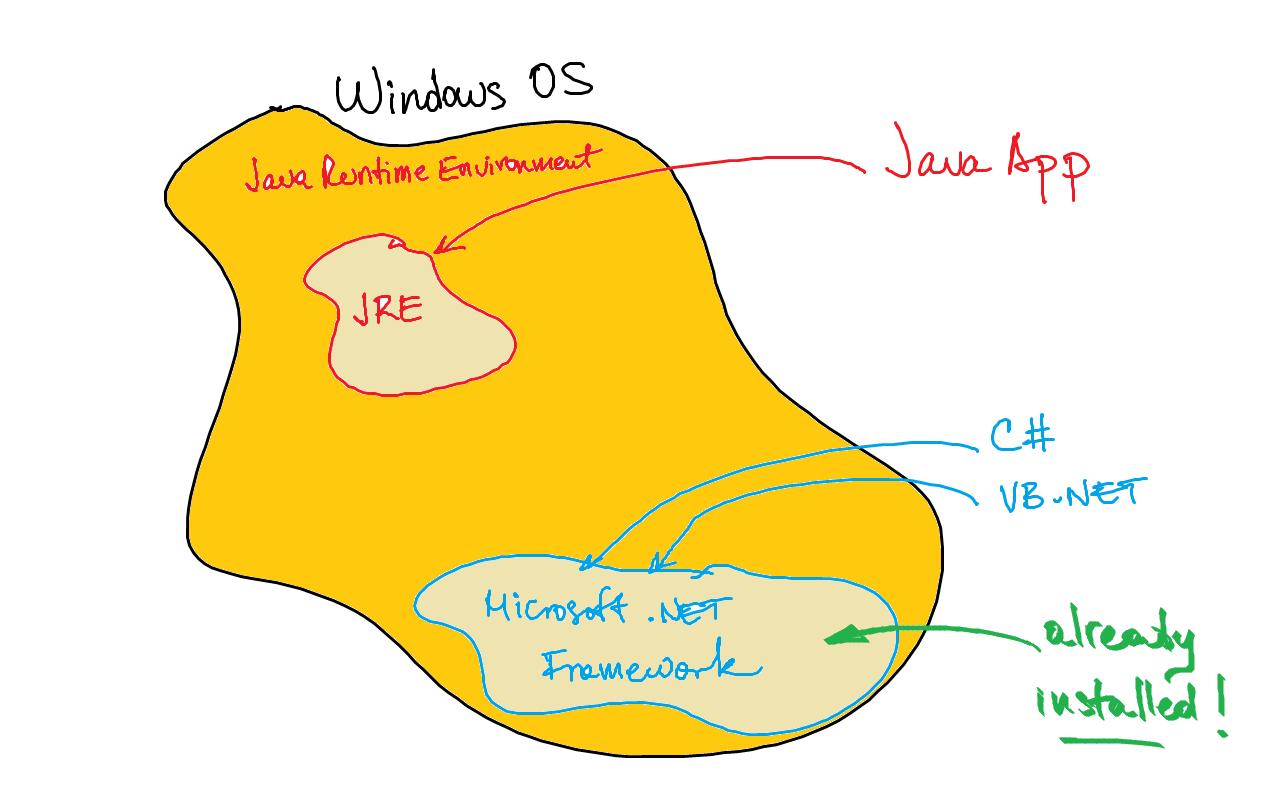 Windows OS
Java Runtime Environment
Java App
JRE
C#
VB.NET
Microsoft .NET
Framework
already
installed!